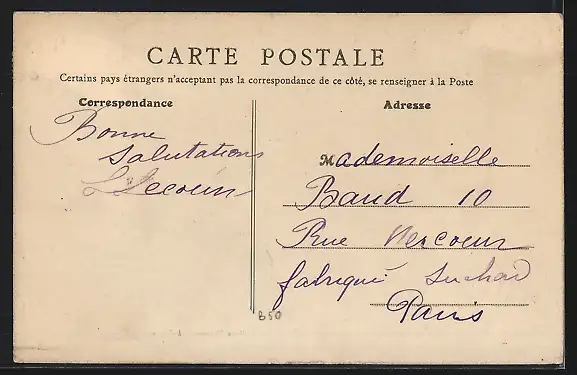 CARTE POSTALE
Certains pays étrangers n'acceptant pas la correspondance de ce côté, se renseigner à la Poste
Correspondance
Bonne
Salutations
Adresse
Mademoiselle
Baud 10
Rue Mercoeur
fabrique Suchard
Paris
B50